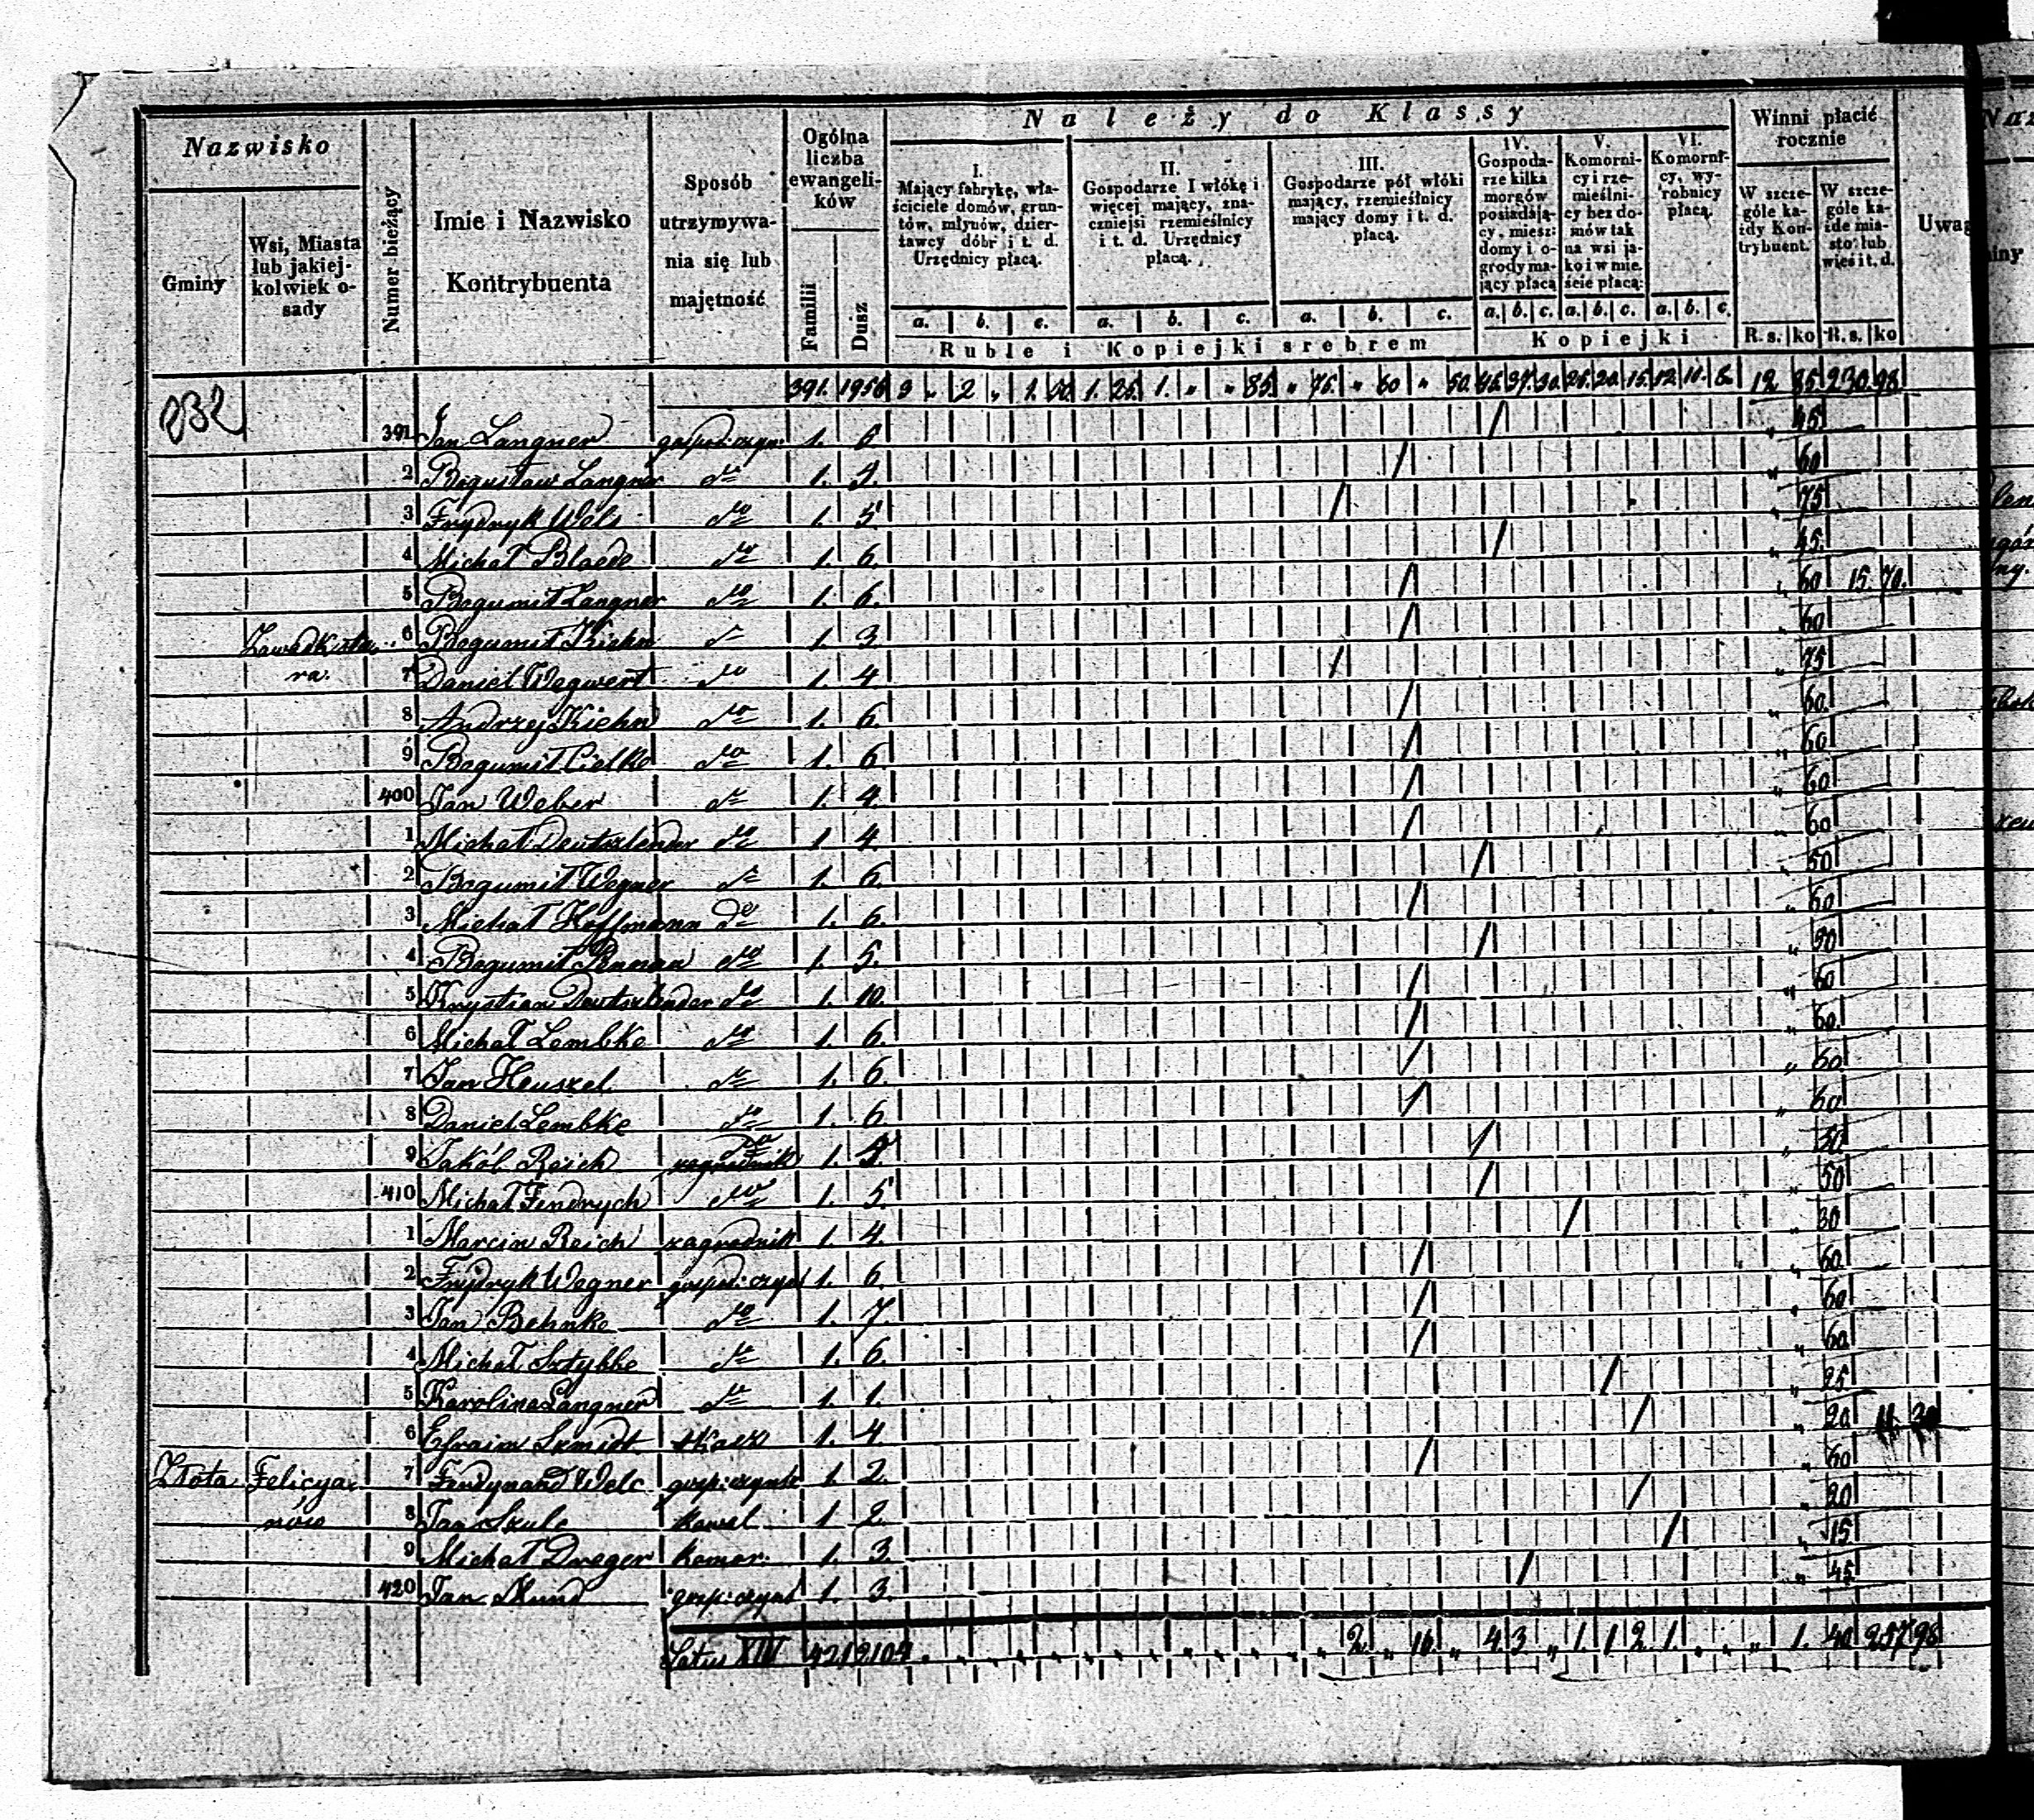 Należy do Klassy
Nazwisko
Gminy
Wsi, Miasta lub jakiejkolwiek osady
Numer bieżący
Imie i Nazwisko Kontrybuenta
Sposób utrzymywania się lub majętność
Ogólna liczba ewangelików
Familii
Dusz
I. Mający fabrykę, właściciele domów, gruntów, młynów, dzierżawcy dóbr i t. d. Urzędnicy płacą.
II. Gospodarze I włókę i więcej mający, znaczniejsi rzemieślnicy i t. d. Urzędnicy płacą.
III. Gospodarze pół włóki mający, rzemieślnicy mający domy i t. d. płacą.
IV. Gospodarze kilka morgów posiadający, miesz: domy i ogrody mający płacą
V. Komornicy i rzemieślnicy bez domów tak na wsi jako i w mieście płacą:
VI. Komornicy, wyrobnicy płacą.
Winni płacić rocznie
W szczególe każdy Kontrybuent.
W szczególe każde miasto lub wieś i t. d.
Uwag
a. b. c. a. b. c. a. b. c. a. b. c. a. b. c. a. b. c.
Ruble i Kopiejki srebrem
Kopiejki
R. s. ko R. s. ko
032
391. 1956 3 " 2 " 1. 50 1. 25. 1. " " 85. " 75. " 60 " 50. 45. 37. 30. 25. 20. 15. 12. 10. 8. 12 85 230 98
391 Jan Langner 1. 6 / " 45
2 Bogusław Langner do 1. / " 60
3 Frydryk Wels do 1. 5 / " 75
4 Michał Blaede do 1. 6. / " 45.
5 Bogumił Langner do 1. 6. / " 60 15. 70.
Zawadki sta- 6 Bogumił Kiehn do 1. 3. / " 60
ra. 7 Daniel Wegwert do 1. 4. / " 75
8 Andrzej Kiehn do 1. 6. / " 60.
9 Bogumił Cielke do 1. 6 / " 60
400 Jan Weber do 1. 4. / " 60
1 Michał Deutszlender do 1 4. / " 60
2 Bogumił Wegner do 1. 6. / " 50
3 Michał Hoffmann do 1. 6. / " 60
4 Bogumił do 1. 5. / " 50
5 Krystian Deutszlender do 1. 10. / " 60
6 Michał Lembke do 1. 6. / " 60.
7 Jan Heuszel do 1. 6. / " 60
8 Daniel Lembke do 1. 6. / " 60
9 Jakób Reich zagrodnik do 1. / "
410 Michał Fendrych do 1. 5. / " 50
1 Marcin Reich zagrodnik 1. 4. / " 30
2 Frydryk Wegner gospod: czyn 1. 6. / " 60
3 Jan Behnke do 1. 7. / " 60
4 Michał Sztybbe do 1. 6. / " 60.
5 Karolina Langner do 1. 1. / " 25
6 Efraim Szmidt tkacz 1. 4. / " 20
Złota Felicya- 7 Ferdynand Welc gosp: czynsz 1. 2. / " 60
nów 8 Jan Szulc kowal 1. 2. / " 20
9 Michał Dreger komor. 1. 3. / " 15
420 Jan gosp: czynsz 1. 3. / " 45
Latus XIV 421 2104 2 " 16. " 4 3 " 1 1 2 1. 1. 40 257 98